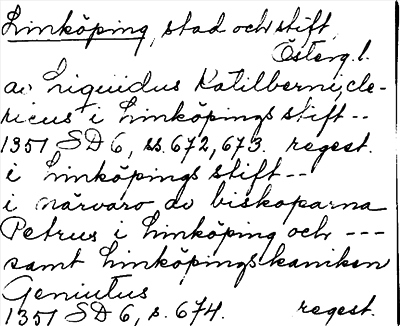 Linköping, stad och stift,
Österg. l.
av Liquidus Katilberni, cle-
ricus i Linköpings stift --
1351 SD 6, ss. 672, 673. regest.
i Linköpings stift --
i närvaro av biskoparna
Petrus i Linköping och ---
samt Linköpingskaniken
Geniutus
1351 SD 6, s. 674. regest.